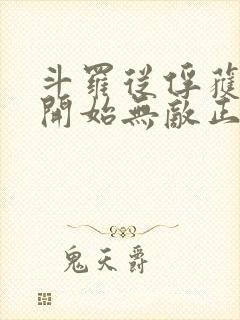 斗羅從俘獲
開始無敵正
鬼天爵